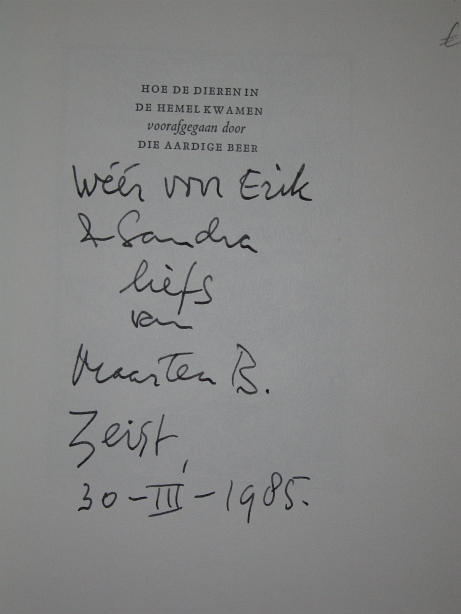 HOE DE DIEREN IN
DE HEMEL KWAMEN
voorafgegaan door
DIE AARDIGE BEER
Wéér voor Erik
& Sandra
liefs
van
Maarten B.
Zeist,
30-III-1985.
€